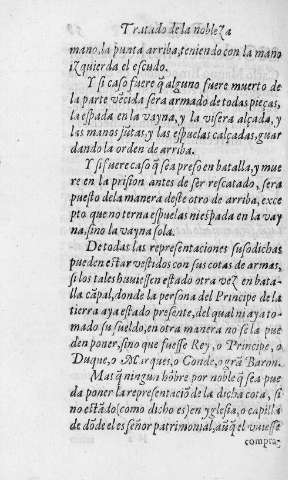 Tratado de la nobleza
mano, la punta arriba, teniendo con la mano
izquierda el escudo.
Y si caso fuere q̃ alguno fuere muerto de
la parte vẽcida sera armado de todas pieças,
la espada en la vayna, y la visera alçada, y
las manos jũtas, y las espuelas calçadas, guar
dando la orden de arriba.
Y si fuere caso q̃ sea preso en batalla, y mue
re en la prision antes de ser rescatado, sera
puesto dela manera deste otro de arriba, exce
pto que no terna espuelas ni espada en la vay
na, sino la vayna sola.
De todas las representaciones susodichas
pueden estar vestidos con sus cotas de armas,
si los tales huuiessen estado otra vez en bata-
lla cãpal, donde la persona del Principe de la
tierra aya estado presente, del qual ni aya to-
mado su sueldo, en otra manera no se la pue
den poner, sino que fuesse Rey, o Principe, o
Duque, o Marques, o Conde, o grã Baron.
Mas q̃ ningun hõbre por noble q̃ sea pue
da poner la representaciõ de la dicha cota, si
no estãdo (como dicho es) en yglesia, o capilla
de dõde el es señor patrimonial, aũq̃ el vuiesse
compra-